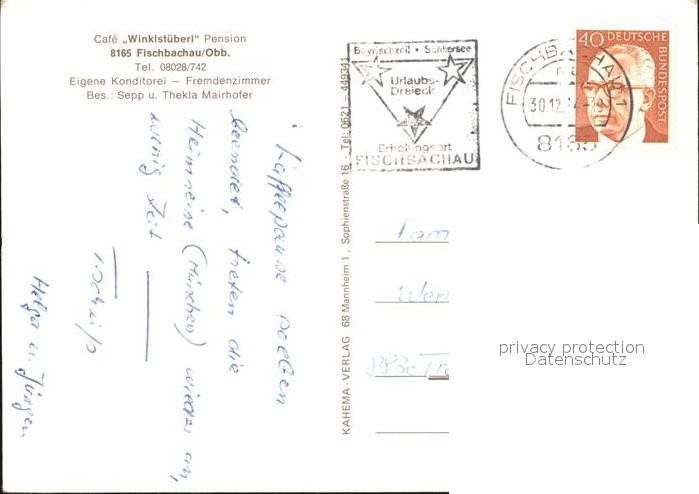 Café „Winklstüberl" Pension
8165 Fischbachau/Obb.
Tel. 08028/742
Eigene Konditorei – Fremdenzimmer
Bes.: Sepp u. Thekla Mairhofer
Kaffeepause soeben
beendet, treten die
Heimreise (München) wieder an,
wenig Zeit
Tschüß
Helga u. Jürgen
KAHEMA-VERLAG 68 Mannheim 1, Sophienstraße 16 - Tel. 0621 – 449341
Bayrischzell • Schliersee
Urlaubs-
Dreieck
Erholungsort
FISCHBACHAU
FISCHBACHAU 1
30.12.74
8165
40 DEUTSCHE
BUNDESPOST
Fam
privacy protection
Datenschutz